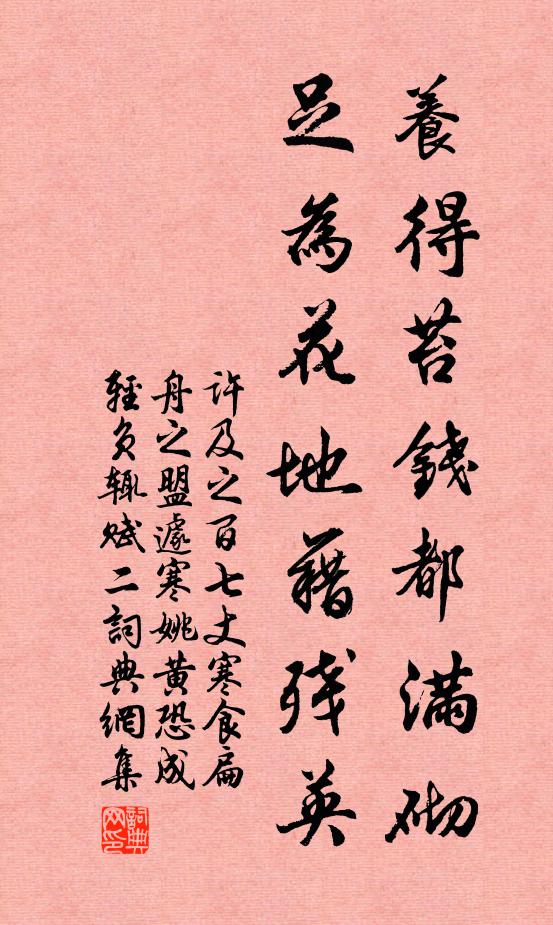 養得苔錢都滿砌
足為花地藉残英
許及之百七丈寒食扁
舟之盟遽寒姚黄恐成
輕負輒賦二詞典網集
詞典网印